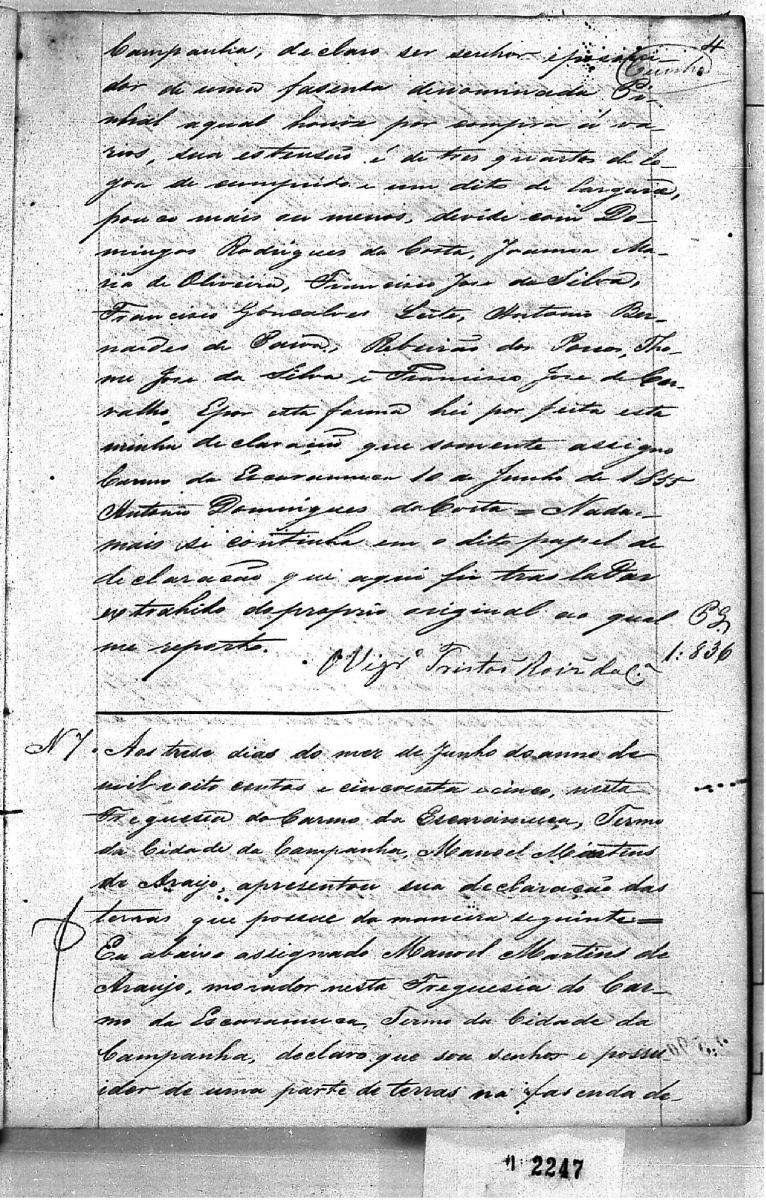 4
Cunha
Campanha, declaro ser senhor e possui-
dor de uma fasenta denominada Pi-
nhal aqual houve por compra á va-
rios, sua estensão é de tres quartos de le-
goa de cumprido e um dito de largura,
pouco mais ou menos, devide com Do-
mingos Rodrigues da Costa, Joanna Ma-
ria de Oliveira, Francisco Jose da Silva,
Francisco Gonsalves Leite, Antonio Ber-
nardes de Paiva, Ribeirão dos Porcos, Tho-
me Jose da Silva e Francisco Jose de Car-
valho. Epor esta forma hei por feita esta
minha declaração que somente assigno
Carmo da Escaramuca 10 de Junho de 1855
Antonio Domingues da Costa = Nada-
mais se continha em o dito papel de
declaração que aqui fiz trasladar
extrahido do proprio original ao qual
me reporto.
O Vigr.º Tristão
1:836
N 7. Aos trese dias do mez de Junho do anno de
mil e oito centos e cincoenta e cinco, nesta
Freguesia do Carmo da Escaramuca, Termo
da Cidade da Campanha, Manoel Martins
de Araujo, apresentou sua declaração das
terras que possue da maneira seguinte =
Eu abaixo assignado Manoel Martins de
Araujo, morador nesta Freguesia do Car-
mo da Escaramuca, Termo da Cidade da
Campanha, declaro que sou senhor e possu
idor de uma parte de terras na fasenda de
2247